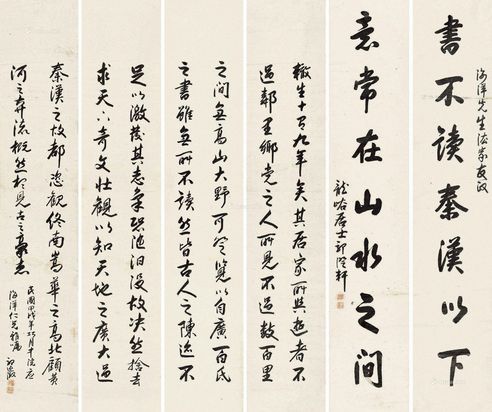 海洋先生法家
書不讀秦漢以下
意常在山水之間
龍峪居士
轍生十有九年矣其居家所與遊者不
過鄰里鄉党之人所見不過數百里
之間無高山大野可登覽以自廣百氏
之書雖無所不讀然皆古人之陳迹不
足以激發其志氣恐遂汩沒故決然捨去
求天下奇文壯觀以知天地之廣大過
秦漢之故都恣觀終南嵩華之高北顧黃
河之奔流慨然想見古之豪杰
民國甲戌年巧月中浣應
海洋仁兄雅屬